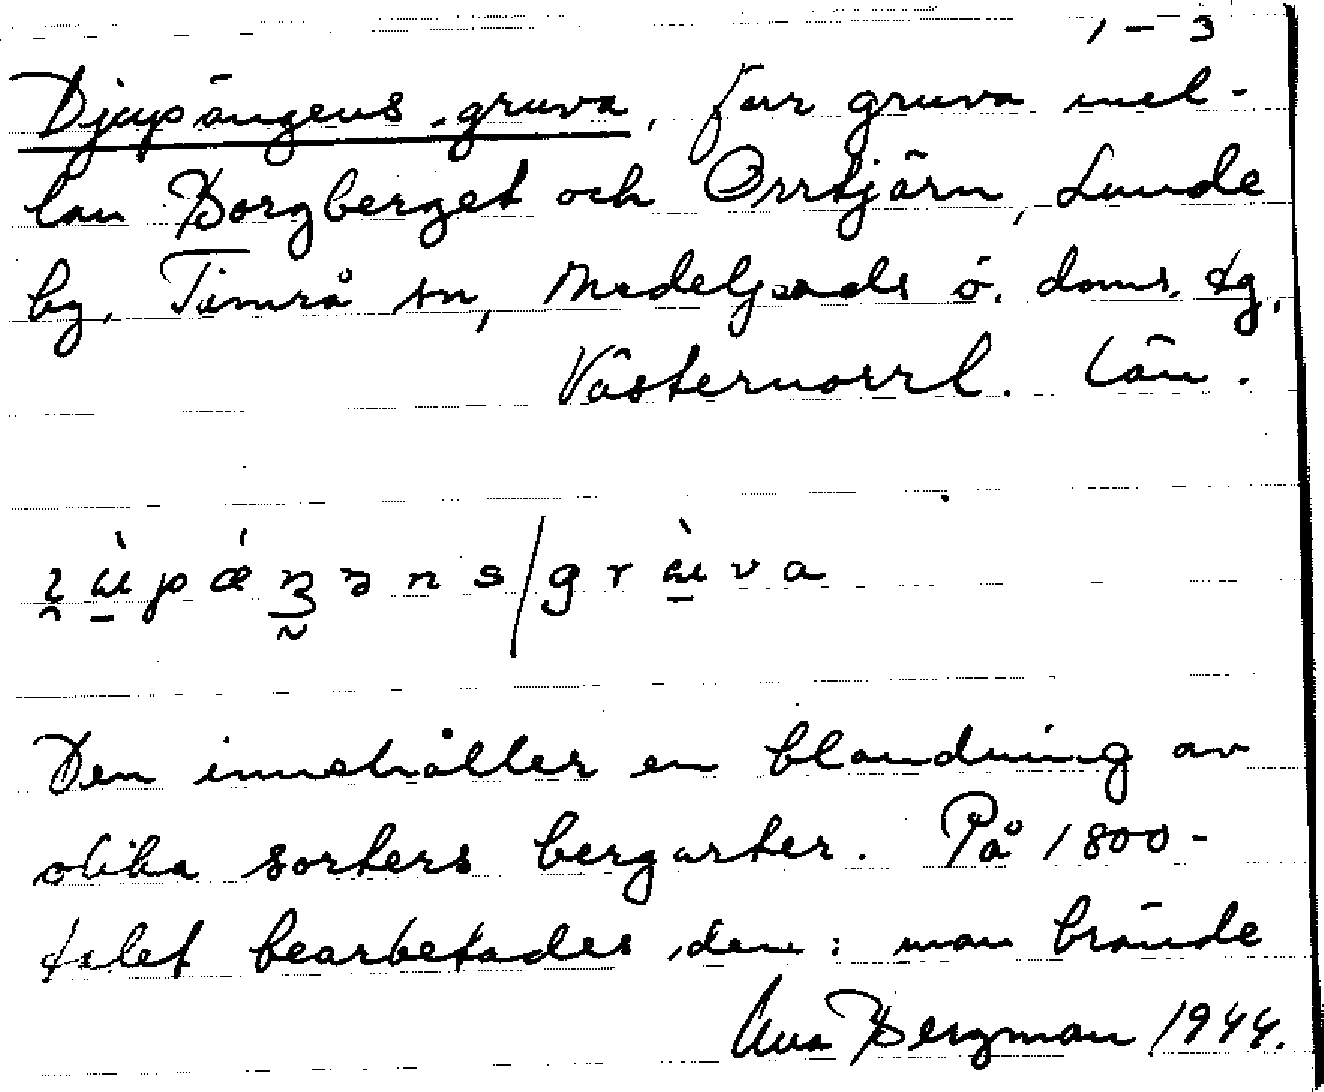 1-3
Djupängens gruva, för gruva mel-
lan Borgberget och Orrtjärn, Lunde
by, Timrå sn, Medelpads ö. doms. tg,
Västernorrl. län.
Den innehåller en blandning av
olika sorters bergarter. På 1800-
talet bearbetades den: man brände
Ava Bergman 1944.